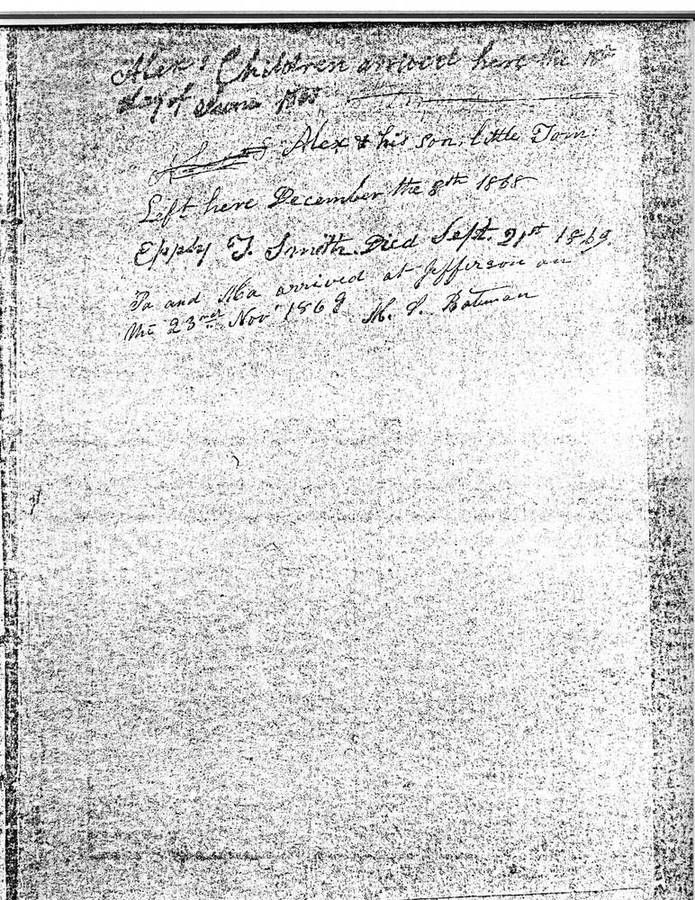 Alex's Children arrived here the 18th
day of June 1868
Alex & his son, little Tom
Left here December the 8th 1868
Eppsy T. Smith Died Sept. 21st 1869
Pa and Ma arrived at Jefferson on
the 23rd Nov 1869 M. S. Bateman